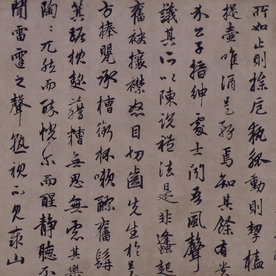 所如止則操卮執觚動則挈榼
提壺唯酒是務焉知其餘有貴
介公子搢紳處士聞吾風聲
議其所以陳說禮法是非蜂起
奮袂攘襟怒目切齒先生於是
方捧甖承槽銜杯漱醪奮髯
箕踞枕麴藉糟無思無慮其樂
陶〻兀然而醉恍尔而醒靜聽不
聞雷霆之聲孰視不見泰山